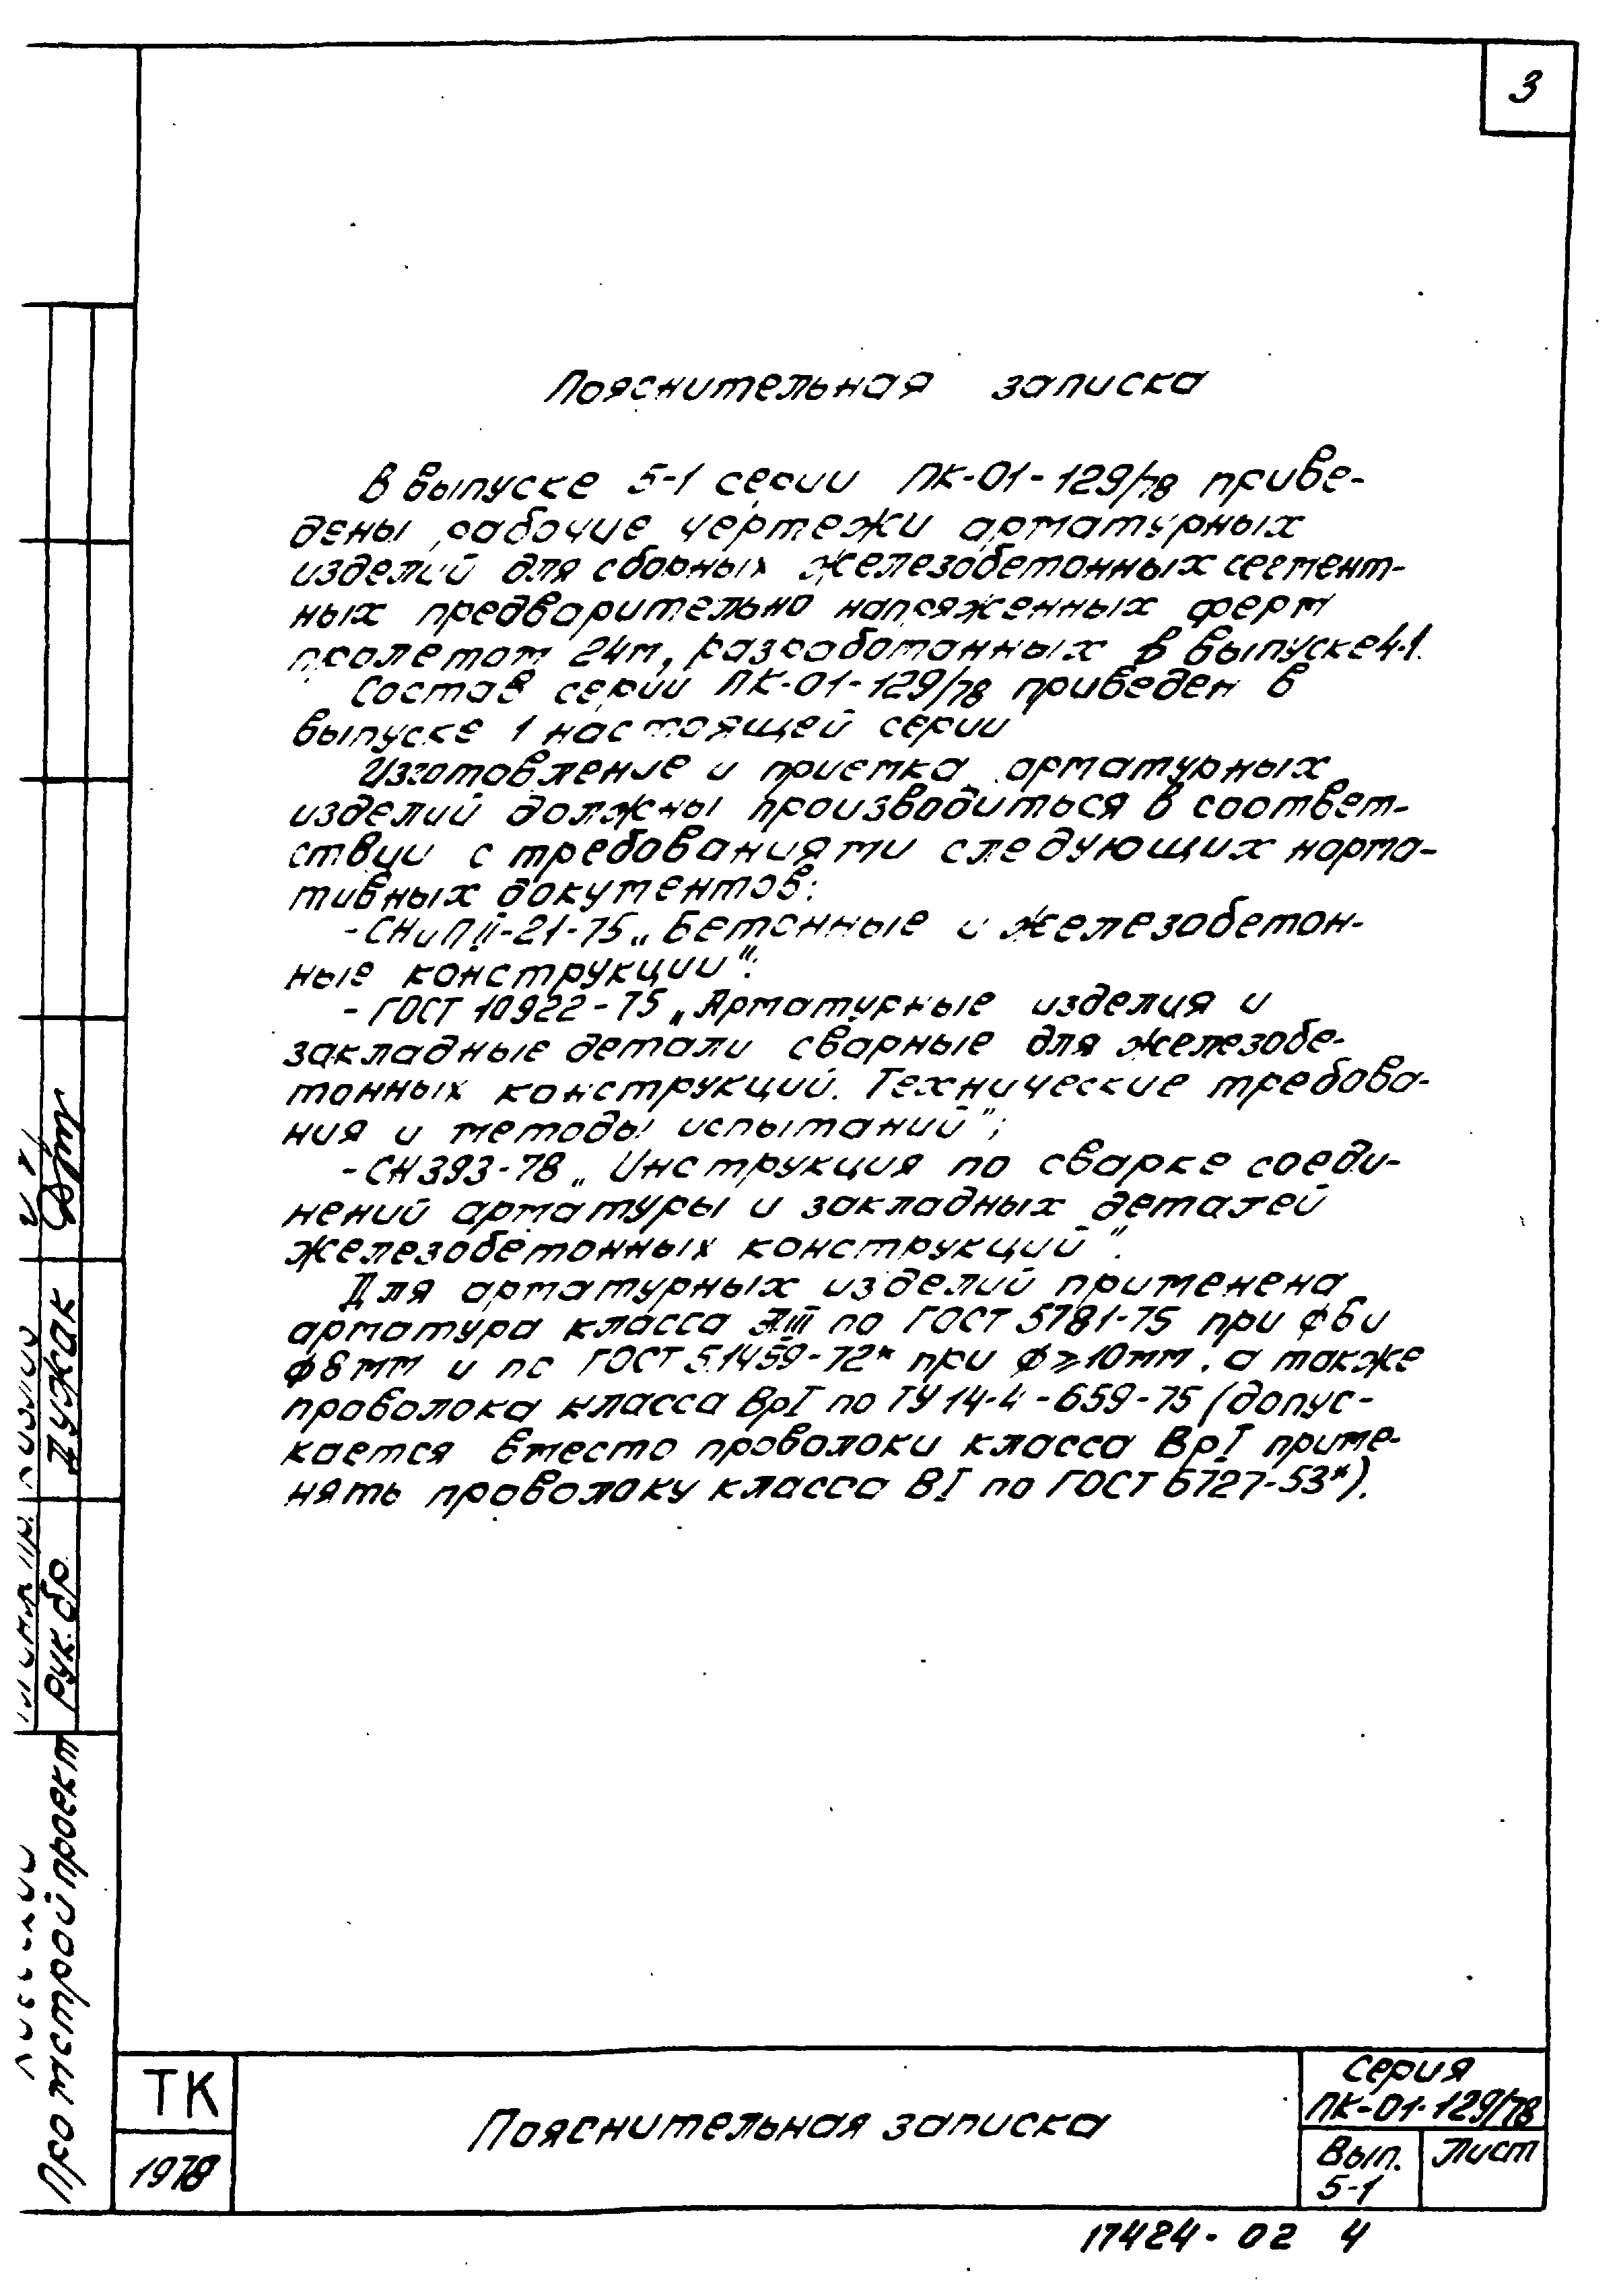 3
Пояснительная записка
В выпуске 5-1 серии ПК-01-129/78 приве-
дены рабочие чертежи арматурных
изделий для сборных железобетонных сегмент-
ных предварительно напряженных ферм
пролетом 24м, разработанных в выпуске 4-1.
Состав серии ПК-01-129/78 приведен в
выпуске 1 настоящей серии
Изготовление и приемка арматурных
изделий должны производиться в соответ-
ствии с требованиями следующих норма-
тивных документов:
-СНиП II-21-75 „Бетонные и железобетон-
ные конструкции":
-ГОСТ 10922-75 „Арматурные изделия и
закладные детали сварные для железобе-
тонных конструкций. Технические требова-
ния и методы испытаний";
-СН 393-78 „Инструкция по сварке соеди-
нений арматуры и закладных деталей
железобетонных конструкций".
Для арматурных изделий применена
арматура класса АIII по ГОСТ 5781-75 при ф6 и
ф8мм и по ГОСТ 5.1459-72* при ф≥10мм, а также
проволока класса ВрI по ТУ 14-4-659-75 (допус-
кается вместо проволоки класса ВрI приме-
нять проволоку класса ВI по ГОСТ 6727-53*).
Рук. бр. Дужак
Промстройпроект
ТК
1978
Пояснительная записка
Серия
ПК-01-129/78
Вып. Лист
5-1
17424-02 4